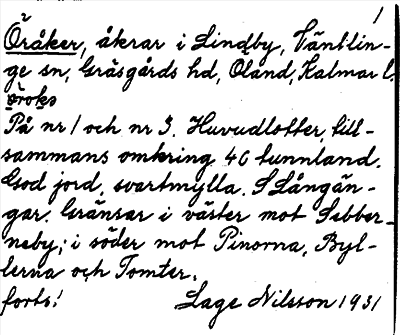 1
Öråker, åkrar i Lindby, Väntlin-
ge sn, Gräsgårds hd, Öland, Kalmar l.
öroks
På nr 1 och nr 3. Huvudlotter, till-
sammans omkring 40 tunnland.
God jord, svartmylla. S Långän-
gar. Gränsar i väster mot Sebber-
neby; i söder mot Pinorna, Byl-
lerna och Tomter.
forts! Lage Nilsson 1931